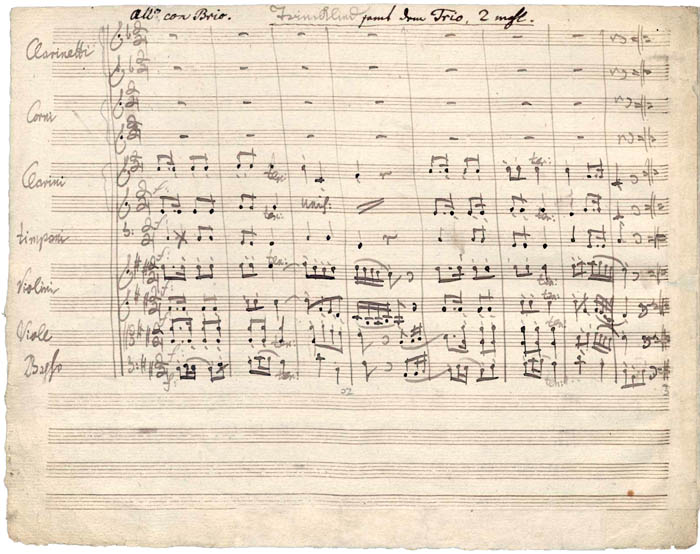 All.o con Brio. Trinklied samt dem Trio, 2 mahl.
Clarinetti
Corni
Clarini
ten:
ten:
ten:
unis:
ten:
timpani
ten:
Violini
ten:
ten:
Viole
ten:
ten:
Basso
ten:
ten: